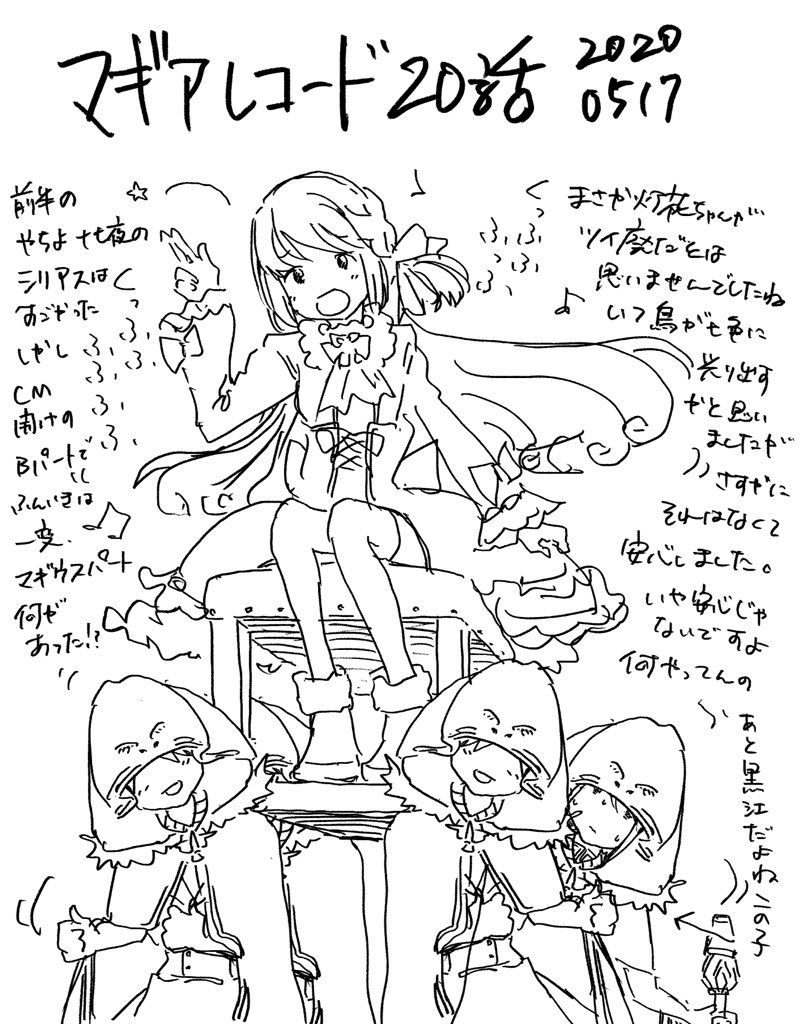 マギアレコード20話
2020
0517
前半の
やちよ十七夜の
シリアスは
すごかった
しかし
CM
開けの
Bパートで
ふんいきは
一変、
マギウスパート
何が
あった!?
くっ
ふふ
ふふ
ふ
くっ
ふふ
ふふ
まさか灯花ちゃんが
ツイ廃だとは
思いませんでしたね
いつ鳥が七色に
光り出す
かと思い
ましたが
さすがに
それはなくて
安心しました。
いや安心じゃ
ないですよ
何やってんの
あと黒江だよねこの子